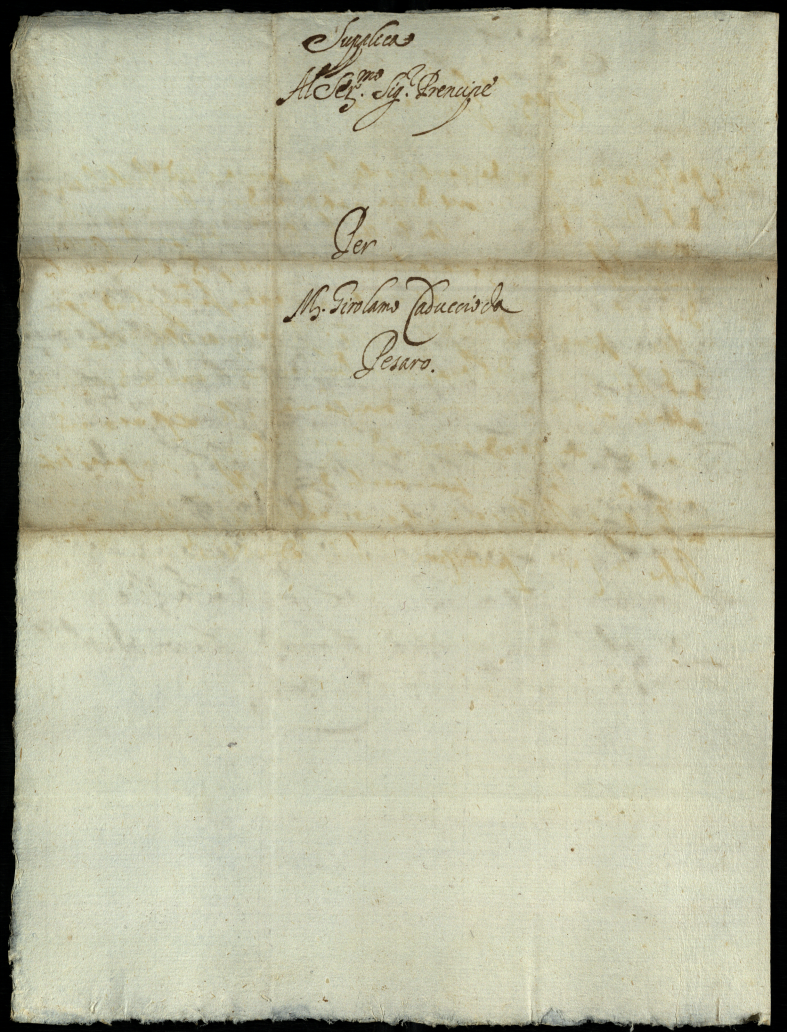 Supplica
Al Ser.mo Sig.r Prencipe
Per
M. Girolamo Caduccio da
Pesaro.